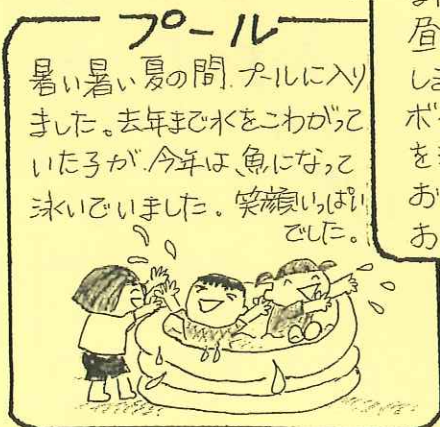 プール
暑い暑い夏の間、プールに入り
ました。去年まで水をこわがって
いた子が、今年は、魚になって
泳いでいました。笑顔いっぱい
でした。
昼
しま
ボ
を
お
お